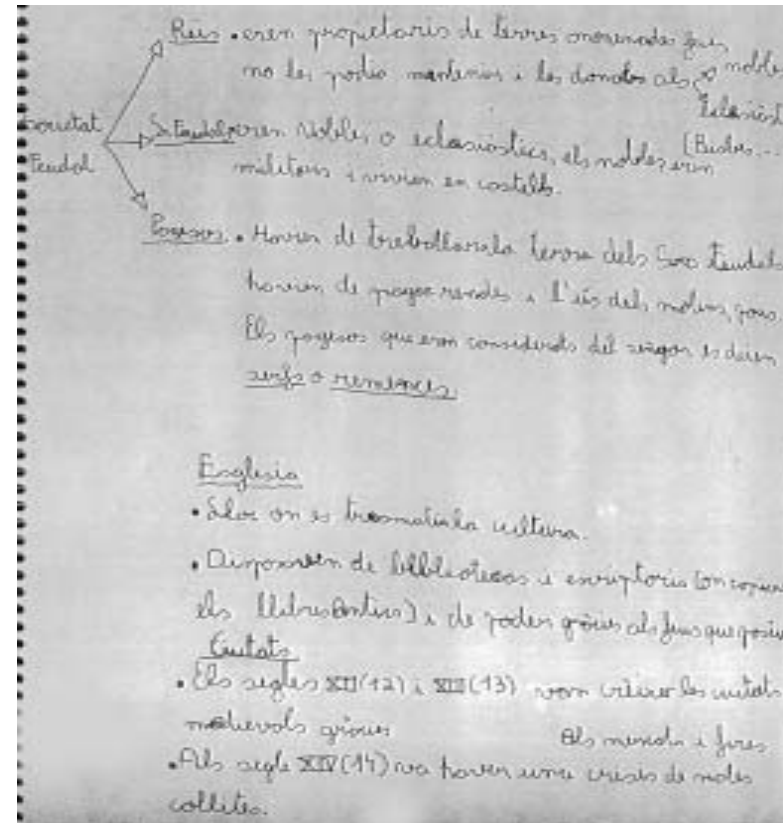 Reis • eren propietaris de terres
no les podia mantenir i les donaba als noble
Societat
Sr. Feudals eren Nobles o eclesiàstics, els nobles eren
[Bisbes...
Feudal
militars i vivien en castells.
Pagesos • Havien de treballar la terra dels Srs Feudals
havien de pagar rendes i l'ús dels molins, pous
Els pagesos que eren considerats del senyor es deien
serfs o remences.
Esglesia
• on es la cultura.
• de bibliotecas i escriptoris (on
els llibres antius) i de poder gràcies als que
Ciutats
• Els segles XII (12) i XIII (13) vam créixer les ciutats
medievals gràcies Als mercats i fires.
• Als segle XIV (14) va haver una crisis de males
collites.